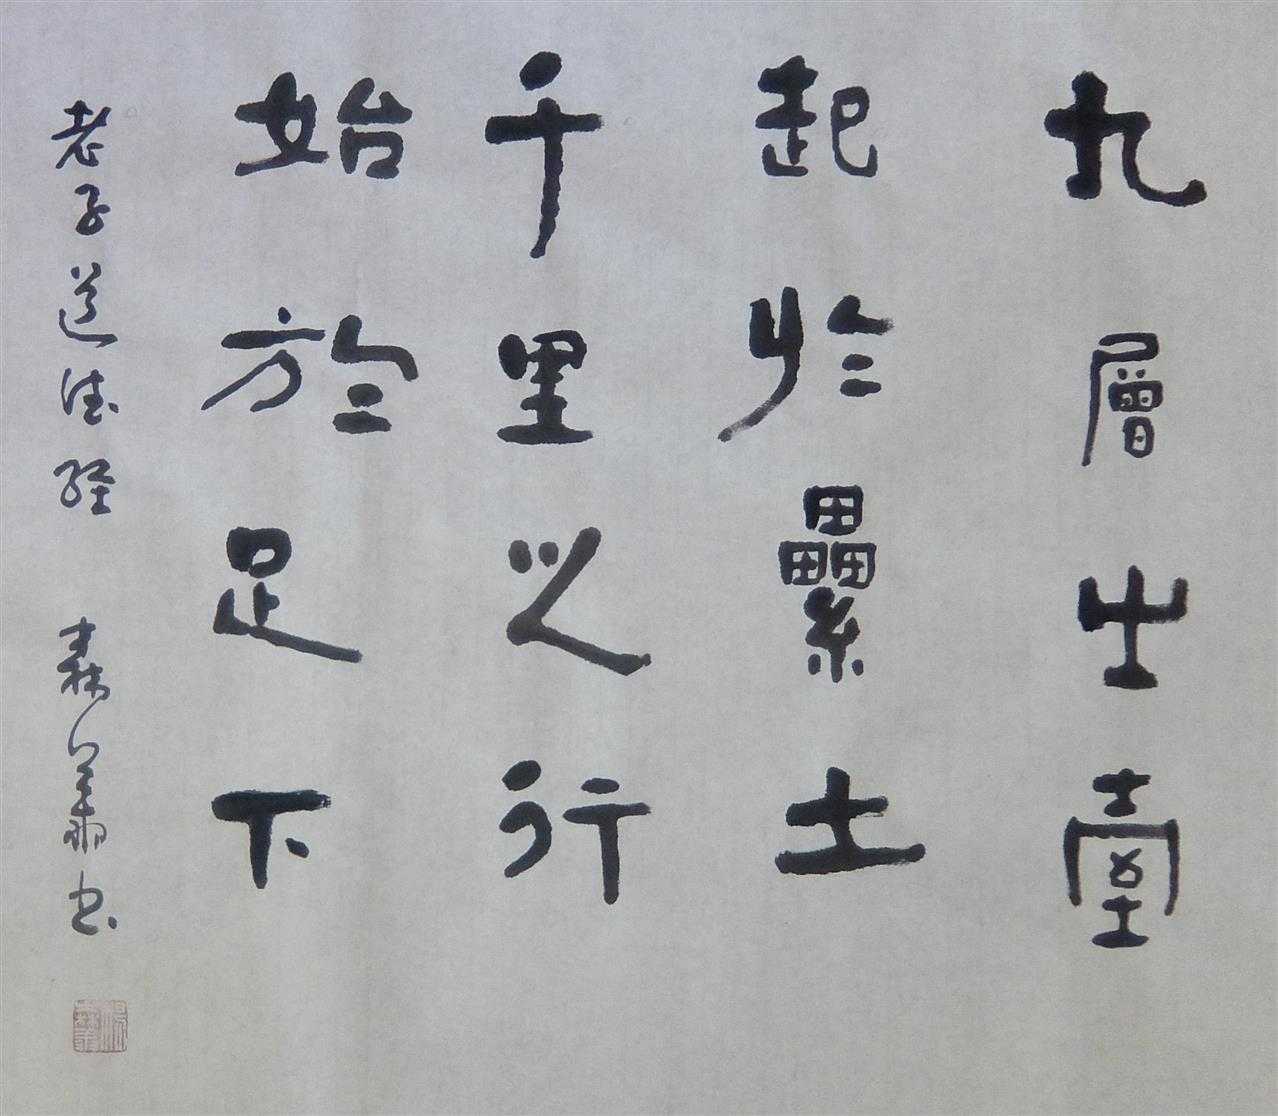 九層之臺
起於纍土
千里之行
始於足下
老子道德經
書